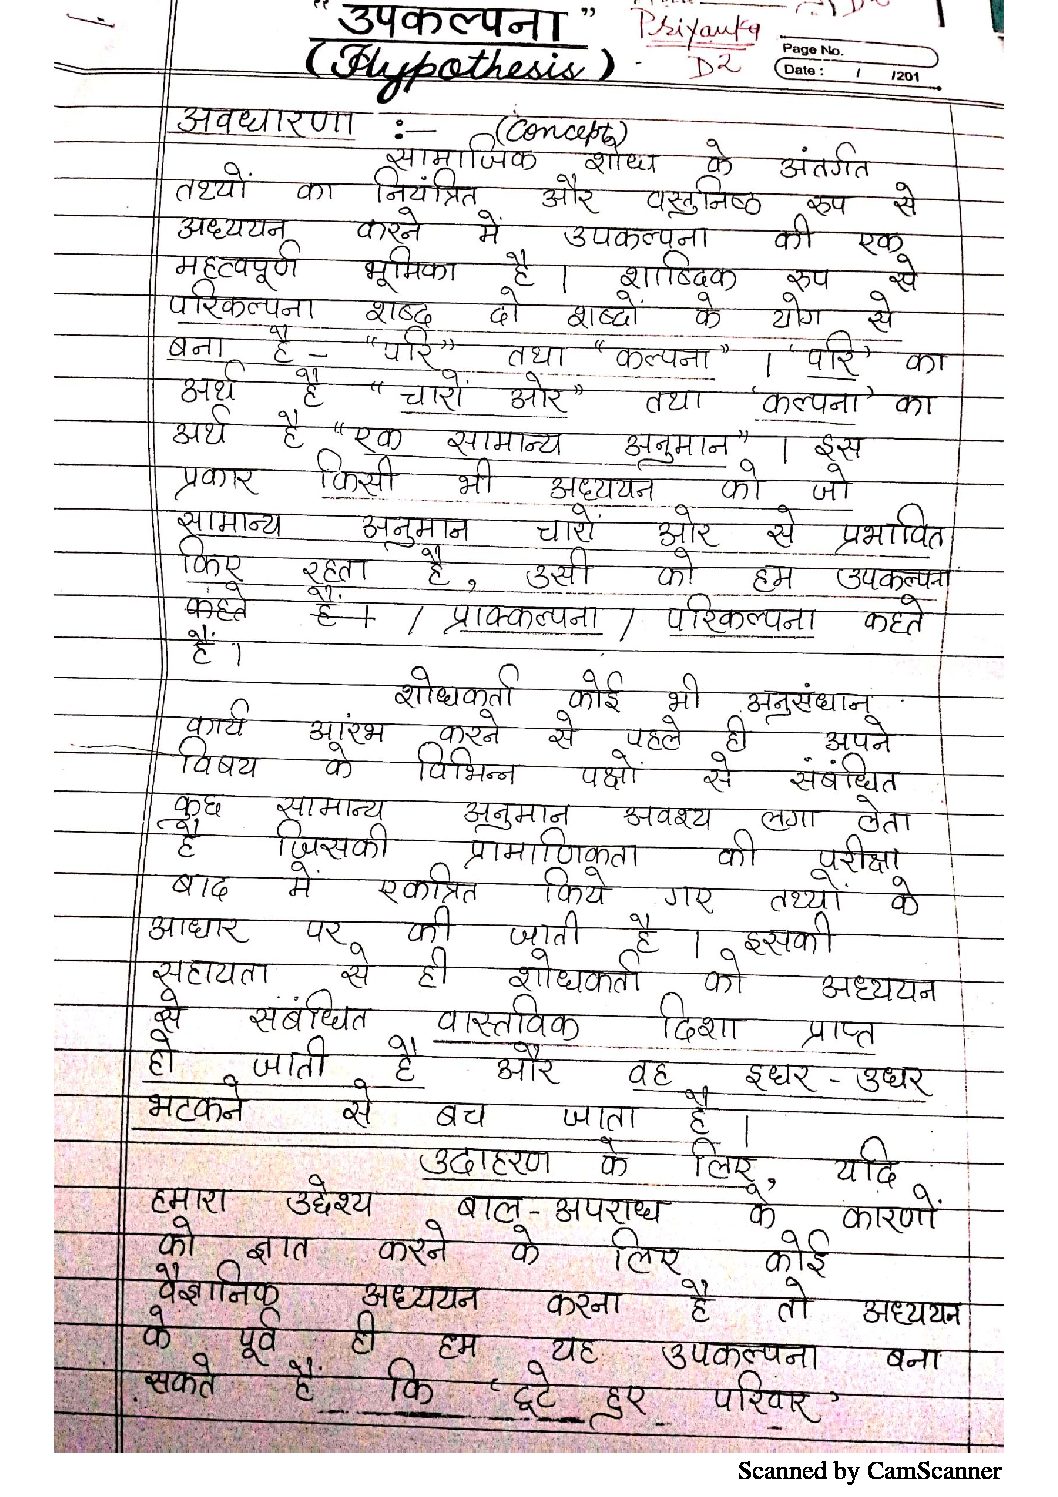 "उपकल्पना"
(Hypothesis)
Priyanka
D2
Page No.
Date : / /201
अवधारणा :— (Concept)
सामाजिक शोध के अंतर्गत
तथ्यों का नियंत्रित और वस्तुनिष्ठ रुप से
अध्ययन करने में उपकल्पना की एक
महत्वपूर्ण भूमिका है । शाब्दिक रुप से
परिकल्पना शब्द दो शब्दों के योग से
बना है – "परि" तथा "कल्पना" । 'परि' का
अर्थ है "चारों ओर" तथा 'कल्पना' का
अर्थ है "एक सामान्य अनुमान" । इस
प्रकार किसी भी अध्ययन को जो
सामान्य अनुमान चारों ओर से प्रभावित
किए रहता है, उसी को हम उपकल्पना
कहते हैं । / प्राक्कल्पना / परिकल्पना कहते
हैं ।
शोधकर्ता कोई भी अनुसंधान
कार्य आरंभ करने से पहले ही अपने
विषय के विभिन्न पक्षों से संबंधित
कुछ सामान्य अनुमान अवश्य लगा लेता
है जिसकी प्रामाणिकता की परीक्षा
बाद में एकत्रित किये गए तथ्यों के
आधार पर की जाती है । इसकी
सहायता से ही शोधकर्ता को अध्ययन
से संबंधित वास्तविक दिशा प्राप्त
हो जाती है और वह इधर-उधर
भटकने से बच जाता है ।
उदाहरण के लिए, यदि
हमारा उद्देश्य बाल-अपराध के कारणों
को ज्ञात करने के लिए कोई
वैज्ञानिक अध्ययन करना है तो अध्ययन
के पूर्व ही हम यह उपकल्पना बना
सकते हैं कि 'टूटे हुए परिवार'
Scanned by CamScanner